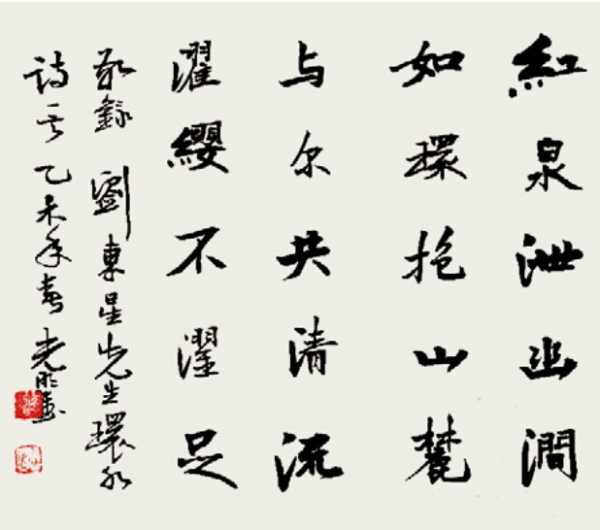 紅泉泄幽澗
如環抱山麓
与尔共清流
濯纓不濯足
敬錄 劉東星先生環水
詩 乙未年春 光